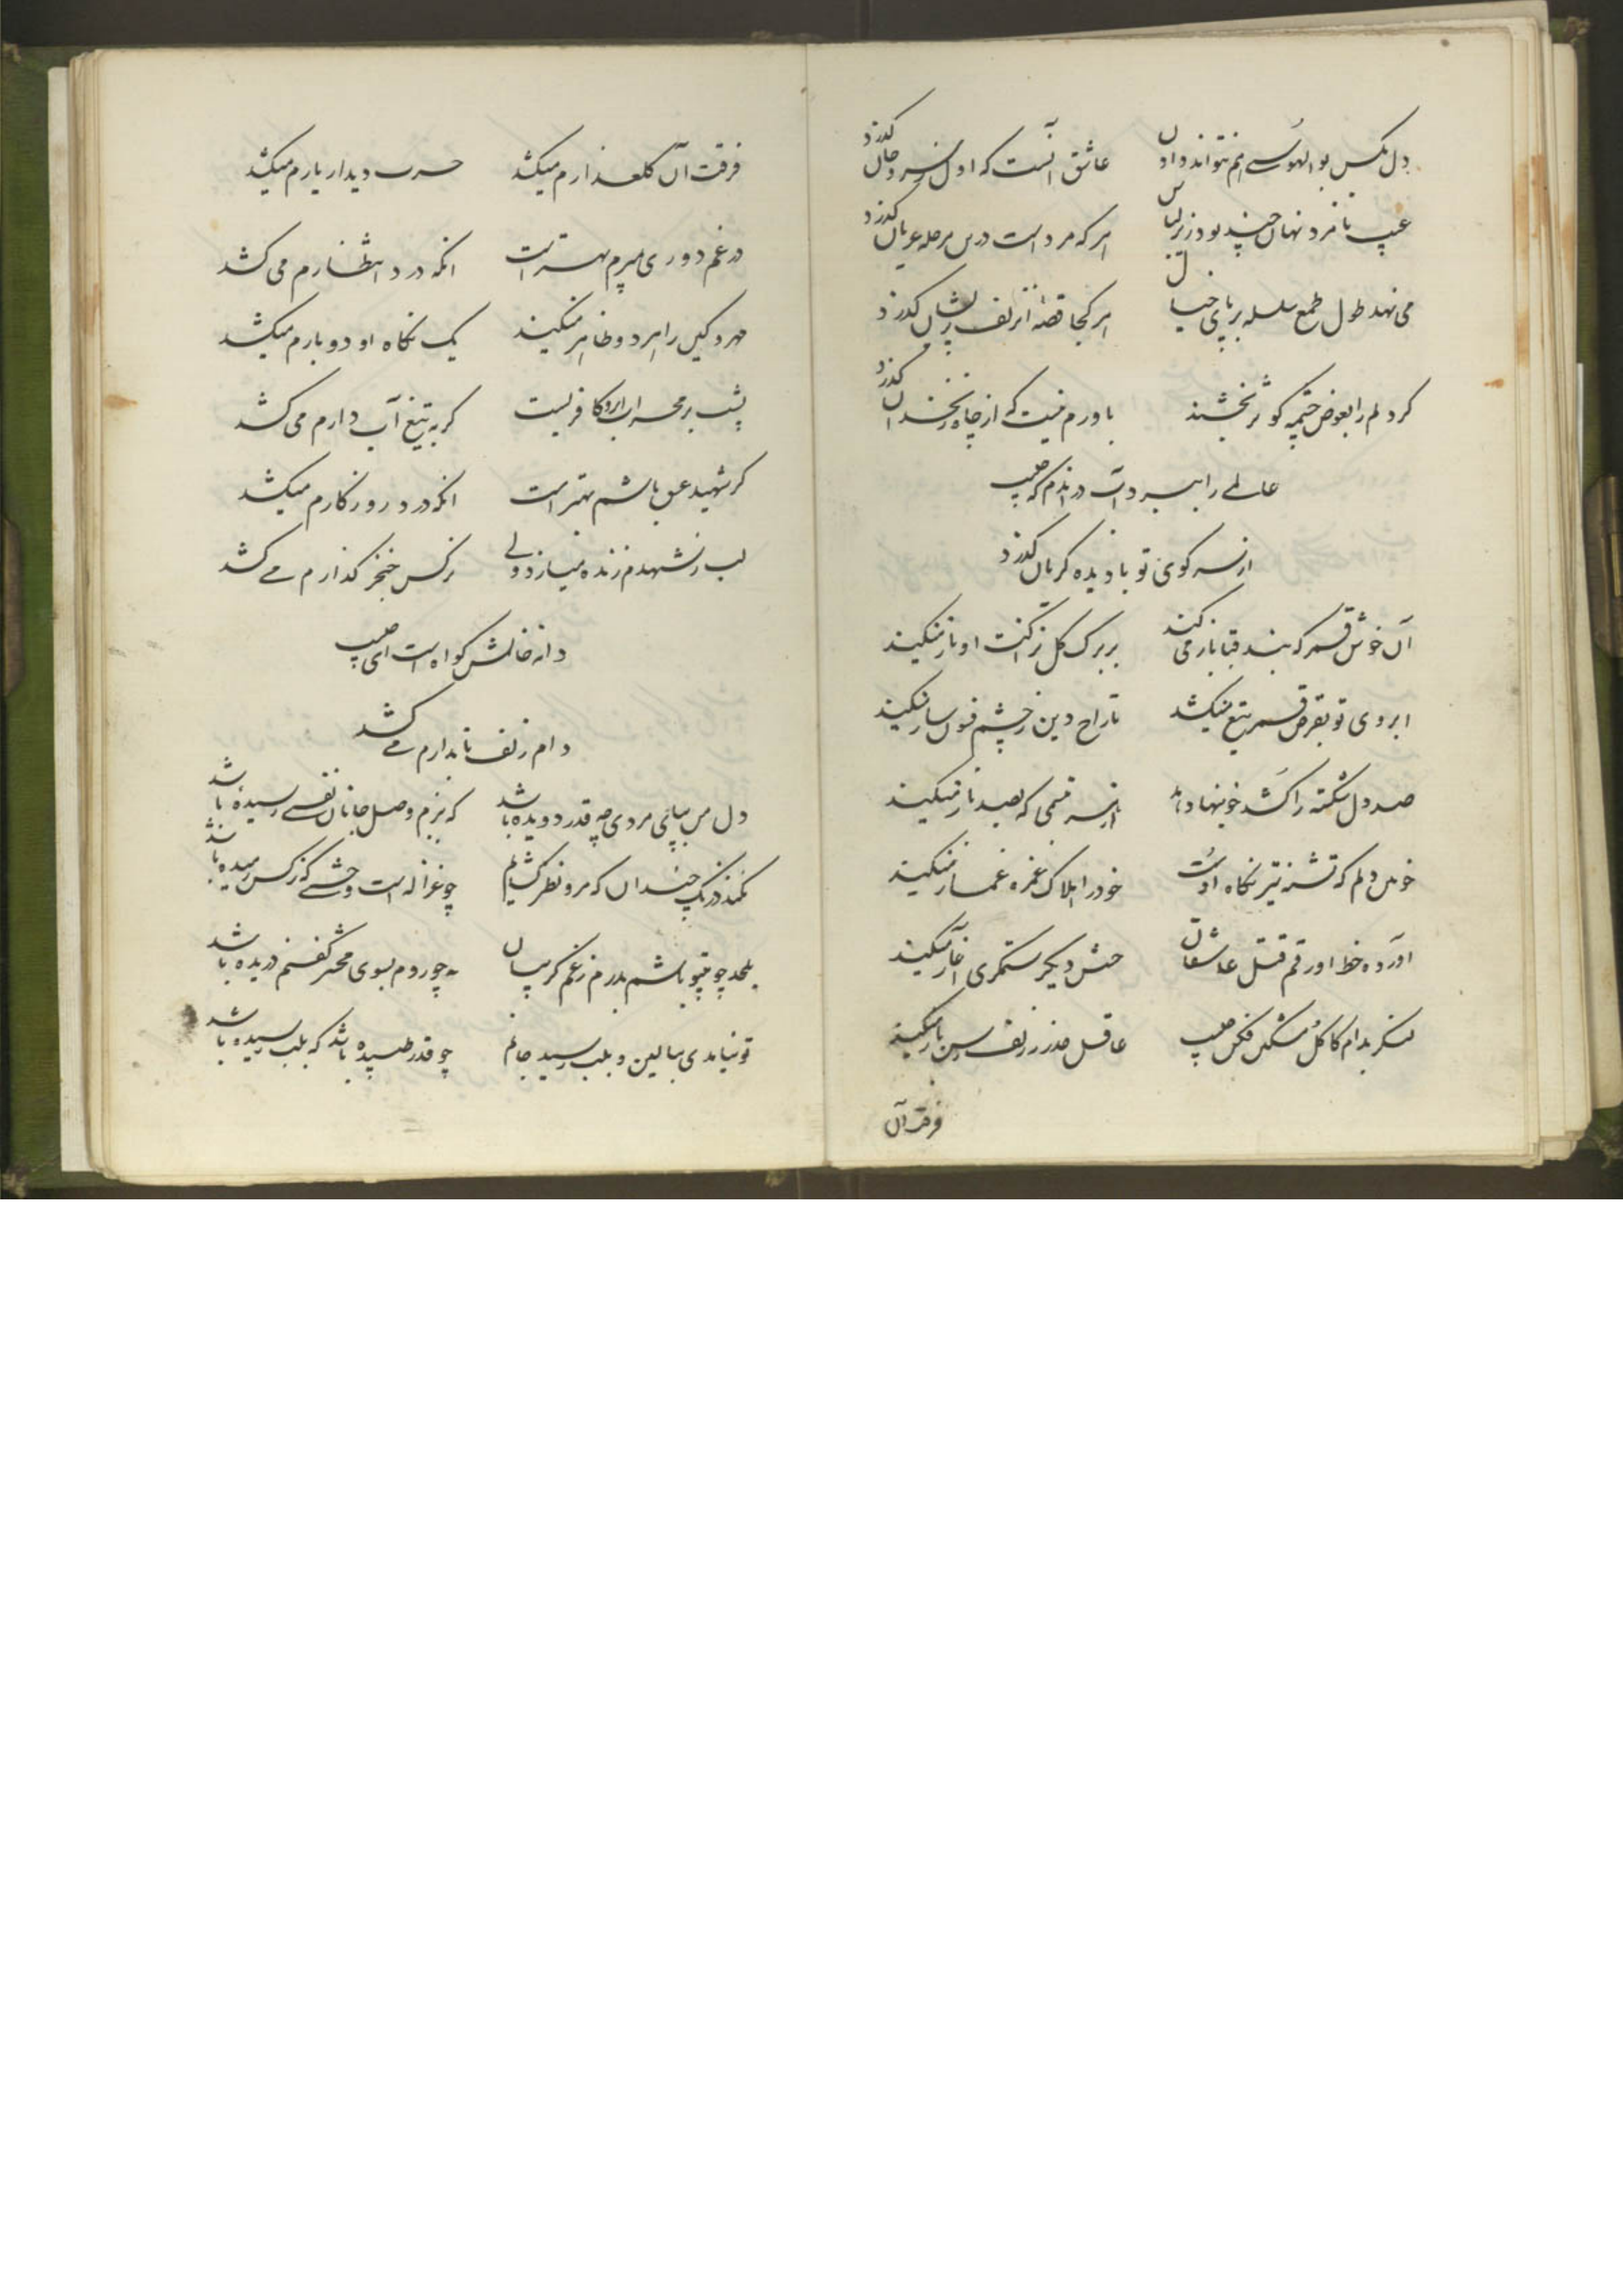 دل بکس بوالهوسی هم نتواند دادن عاشق آنست که اول ز سر و جان گذرد
عیب نامرد نهان چند بود زیر لباس هر که مرد است درین مرحله عریان گذرد
می نهد طول طمع سلسله بر پای خیال هر کجا قصه از زلف پریشان گذرد
گر دلم را بعوض چشمه کوثر بخشند باورم نیست که از چاه زنخدان گذرد
عالمی را ببرد آب در اندم که حبیب
از سر کوی تو با دیده گریان گذرد
آن خوش قمر که بند قبا باز می کند بر برگ گل نزاکت او ناز میکند
ابروی تو بفرض قسم تیغ میکشد تاراج دین ز چشم فسون ساز میکند
صد دل شکسته را کشد خونبها دهد از سر قدمی که بصد ناز میکند
خونین دلم که تشنه تیر نگاه اوست خود را هلاک غمزه غماز میکند
آورده خط او رقم قتل عاشقان حسنش دیگر ستمگری آغاز میکند
بنگر بدام کاکل مشکین فکن حبیب عاقل حذر ز زلف رسن باز میکند
فرقت آن
فرقت آن گلعذارم میکشد حسرت دیدار یارم میکشد
در غم دوری میرم بهتر است انکه درد انتظارم می کشد
مهر و کین را هر دو ظاهر میکند یک نگاه او دو بارم میکشد
پشت بر محراب ابرو کافریست گر به تیغ آب دارم می کشد
گر شهید عشق باشم بهتر است انکه درد روزگارم میکشد
لب ز شهدم زنده میسازد ولی نرگس خنجر گذارم می کشد
دانه خالش گواه است ای حبیب
دام زلف تابدارم می کشد
دل من بپای مردی چه قدر دویده باشد که ببزم وصل جانان نفسی رسیده باشد
نکند درنگ چندان که برو نظر گشایم چو غزاله است وحشی که ز کس رمیده باشد
بلحد چو بیتو باشم بدرم ز غم گریبان به چو روم بسوی محشر کفنم دریده باشد
تو نیامدی ببالین و بلب رسید جانم چو قدر طپیده باشد که بلب رسیده باشد